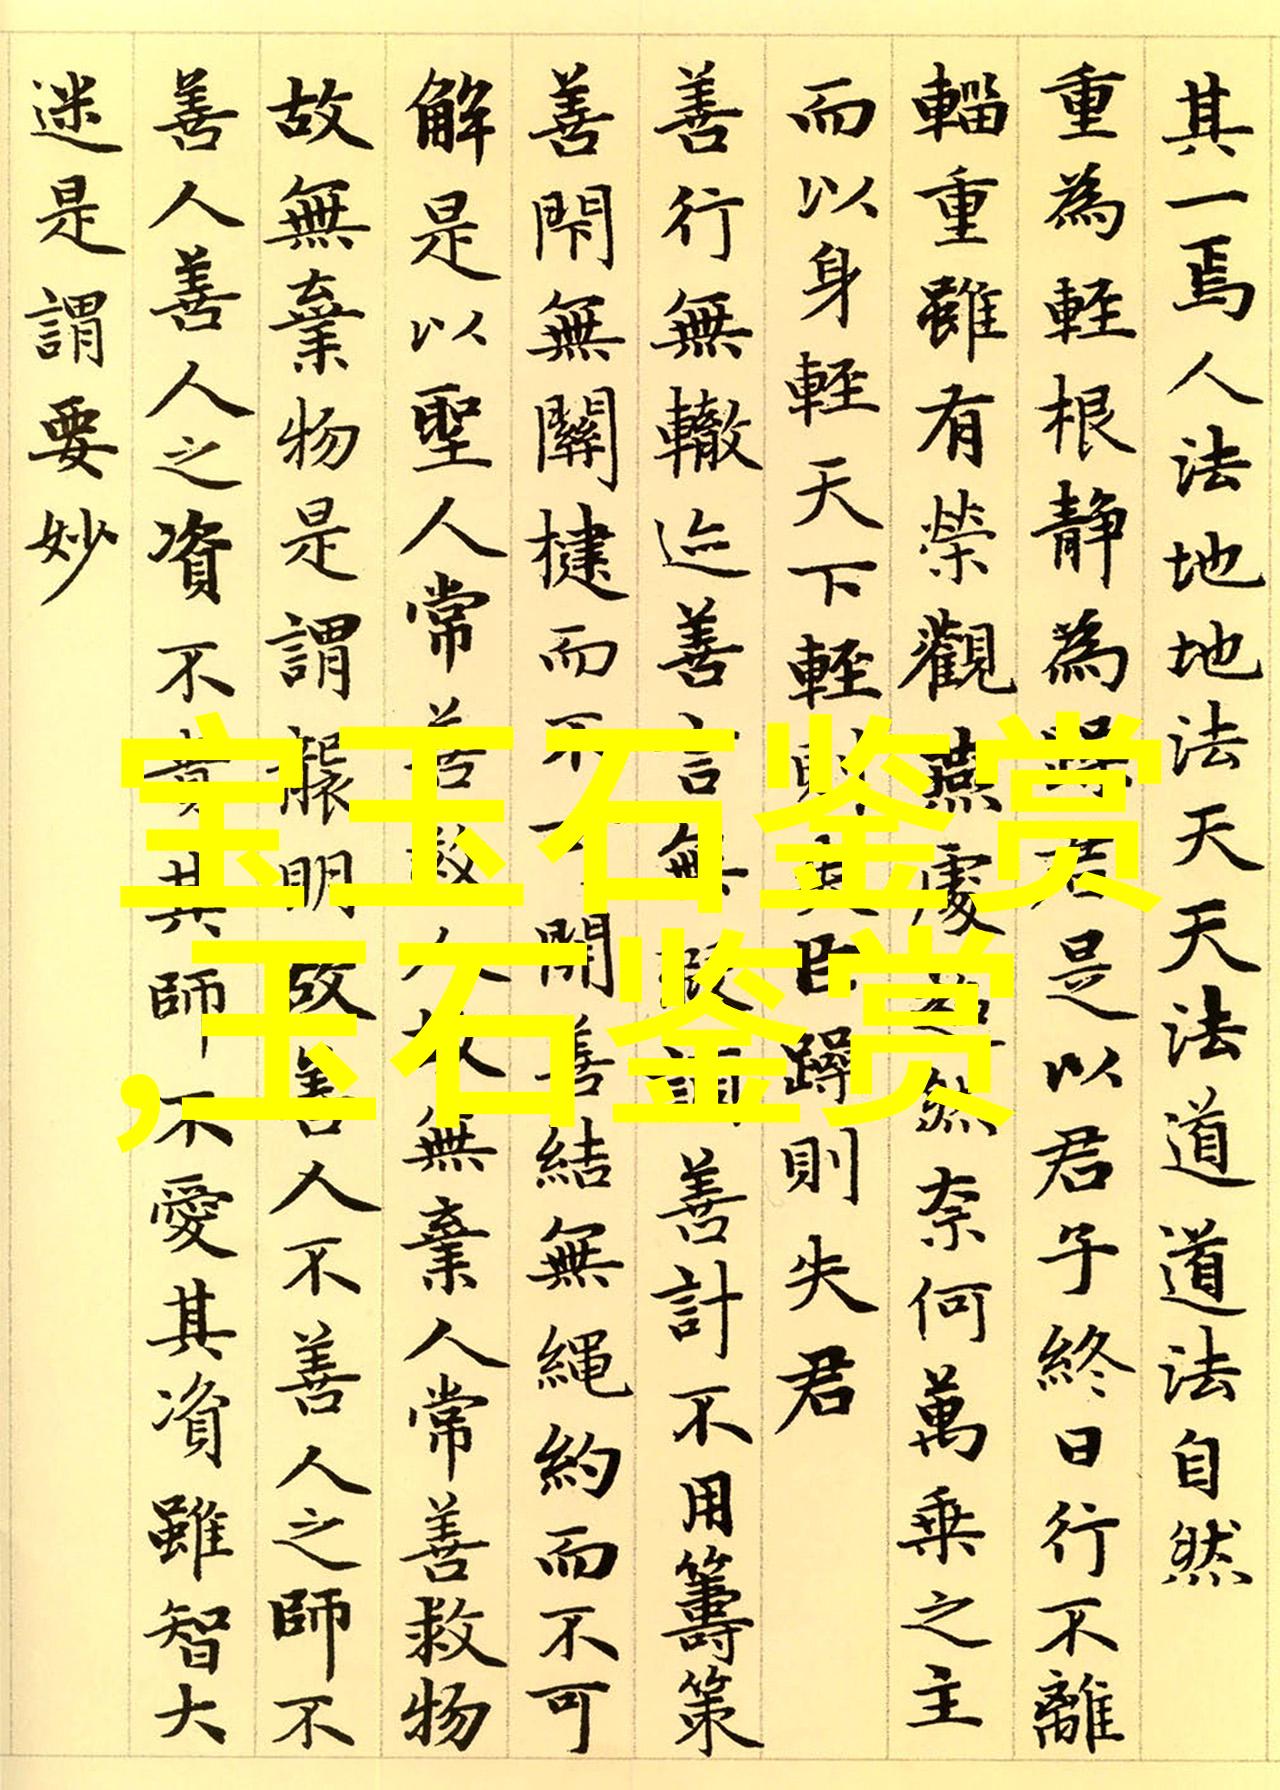 其一焉人法地地法天天法道道法自然
重為輕根静為躁君是以君子終日行不離
輜重雖有榮觀燕處超然奈何萬乘之主
而以身輕天下輕則失臣躁則失君
善行無轍迹善言無瑕謫善計不用籌策
善閇無關楗而不可開善結無繩約而不可
解是以聖人常善救人故無棄人常善救物
故無棄物是謂襲明故善人不善人之師不
善人善人之資不貴其師不愛其資雖智大
迷是謂要妙
宝玉石鉴赏
,玉石鉴赏